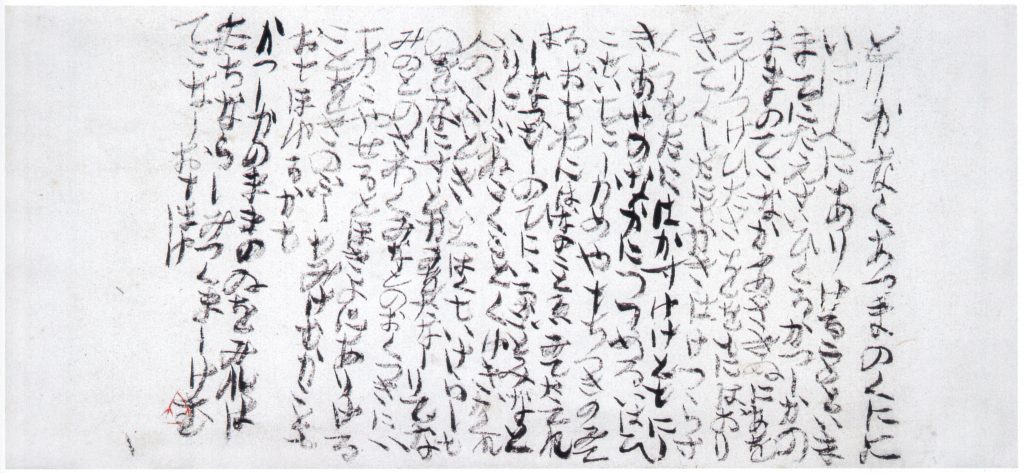 とりかなくあつまのくにに
いにしへにありけることといま
まてにたえすいひくるかつしかの
ままのてこなかあさきぬにあを
えりつけひたさををもにはおり
きてかみたにもかきはけつらす
くつをたにはかすけけともにし
きあやのなかにつつめるいはひ
こもいもにしかめやもちつきのた
れるおもわにはなのことゑみてたてれ
はなつむしのひにいるかことみなと
いりにふねこくことくゆきかくれ
人のいふときいくはくもいけらしも
のをなにすとかみをたなしりてな
みのとのさわくみなとのおくつきにい
もかこやせるとほきよにありける
ことをきのふしもみけむかことも
おもほゆるかも
かつしかのままのゐをみれは
たちならしみつくましけむ
てこなしおもほゆ